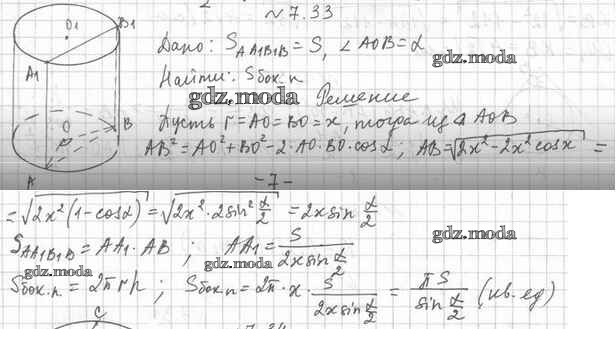 №7.33
O1 B1
A1
O
B
A
Дано: S AA1B1B = S, ∠AOB = α
gdz.moda
Найти: Sбок.п
gdz.moda Решение
Пусть r = AO = BO = x, тогда из Δ AOB
AB² = AO² + BO² - 2·AO·BO·cosα; AB = √2x² - 2x² cosx =
-7-
= √2x²(1-cosα) = √2x²·2sin² α/2 = 2x sin α/2
S AA1B1B = AA1·AB ; AA1 = S/2x sin α/2
gdz.moda
gdz.moda gdz.moda
Sбок.п = 2πrh ; Sбок.п = 2π·x·S/2x sin α/2 = πS/sin α/2 (кв.ед)
C